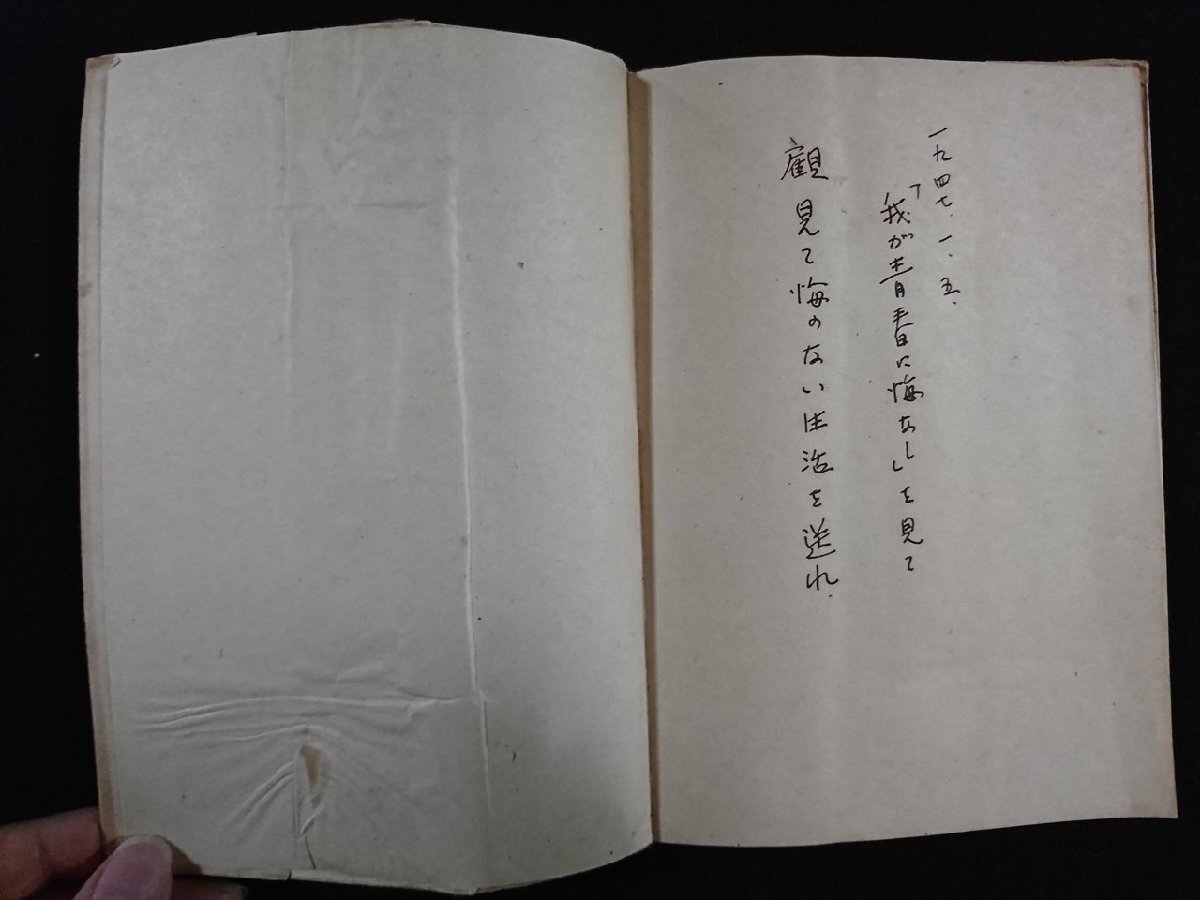 一九四七.一.五.
「我が青春に悔なし」を見て
顧見て悔のない生活を送れ.